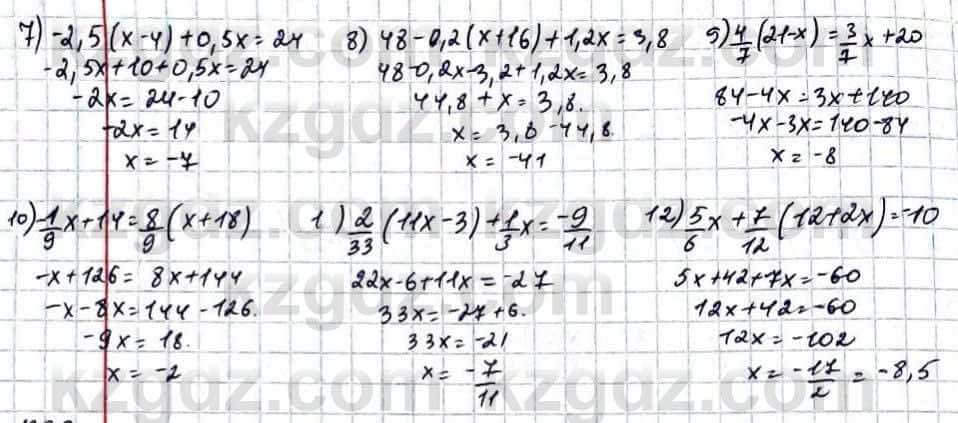 7) -2,5(x-4)+0,5x=24
-2,5x+10+0,5x=24
-2x=24-10
-2x=14
x=-7
8) 48-0,2(x+16)+1,2x=3,8
48-0,2x-3,2+1,2x=3,8
44,8+x=3,8.
x=3,8-44,8.
x=-41
9) 4/7(21-x)=3/7x+20
84-4x=3x+140
-4x-3x=140-84
x=-8
10) -1/9x+14=8/9(x+18)
-x+126=8x+144
-x-8x=144-126.
-9x=18.
x=-2
1) 2/33(11x-3)+1/3x=-9/11
22x-6+11x=-27
33x=-27+6.
33x=-21
x=-7/11
12) 5/6x+7/12(12+2x)=-10
5x+42+7x=-60
12x+42=-60
12x=-102
x=-17/2=-8,5
kzgdz.com
kzgdz.com
kzgdz.com